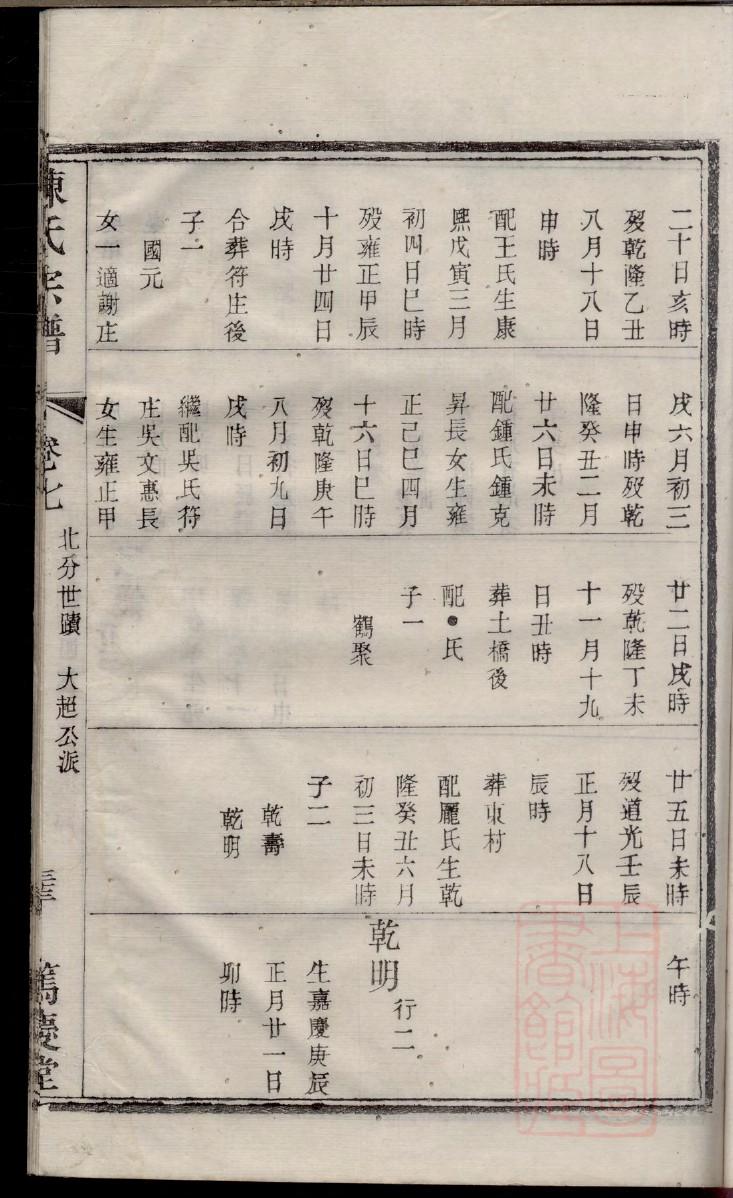 二十日亥時
歿乾隆乙丑
八月十八日
申時
配王氏生康
熙戊寅三月
初四日巳時
歿雍正甲辰
十月廿四日
戌時
合葬符庄後
子一
國元
女一適謝庄
戌六月初三
日申時歿乾
隆癸丑二月
廿六日未時
配鍾氏鍾克
昇長女生雍
正己巳四月
十六日巳時
歿乾隆庚午
八月初九日
戌時
繼配吳氏符
庄吳文惠長
女生雍正甲
廿二日戌時
歿乾隆丁未
十一月十九
日丑時
葬土橋後
配●氏
子一
鶴聚
廿五日未時
歿道光壬辰
正月十八日
辰時
葬東村
配龎氏生乾
隆癸丑六月
初三日未時
子二
乾壽
乾明
午時
乾明 行二
生嘉慶庚辰
正月廿一日
卯時
陳氏宗譜
卷七
北分世蹟 大起公派
篤慶堂
上海圖書館藏